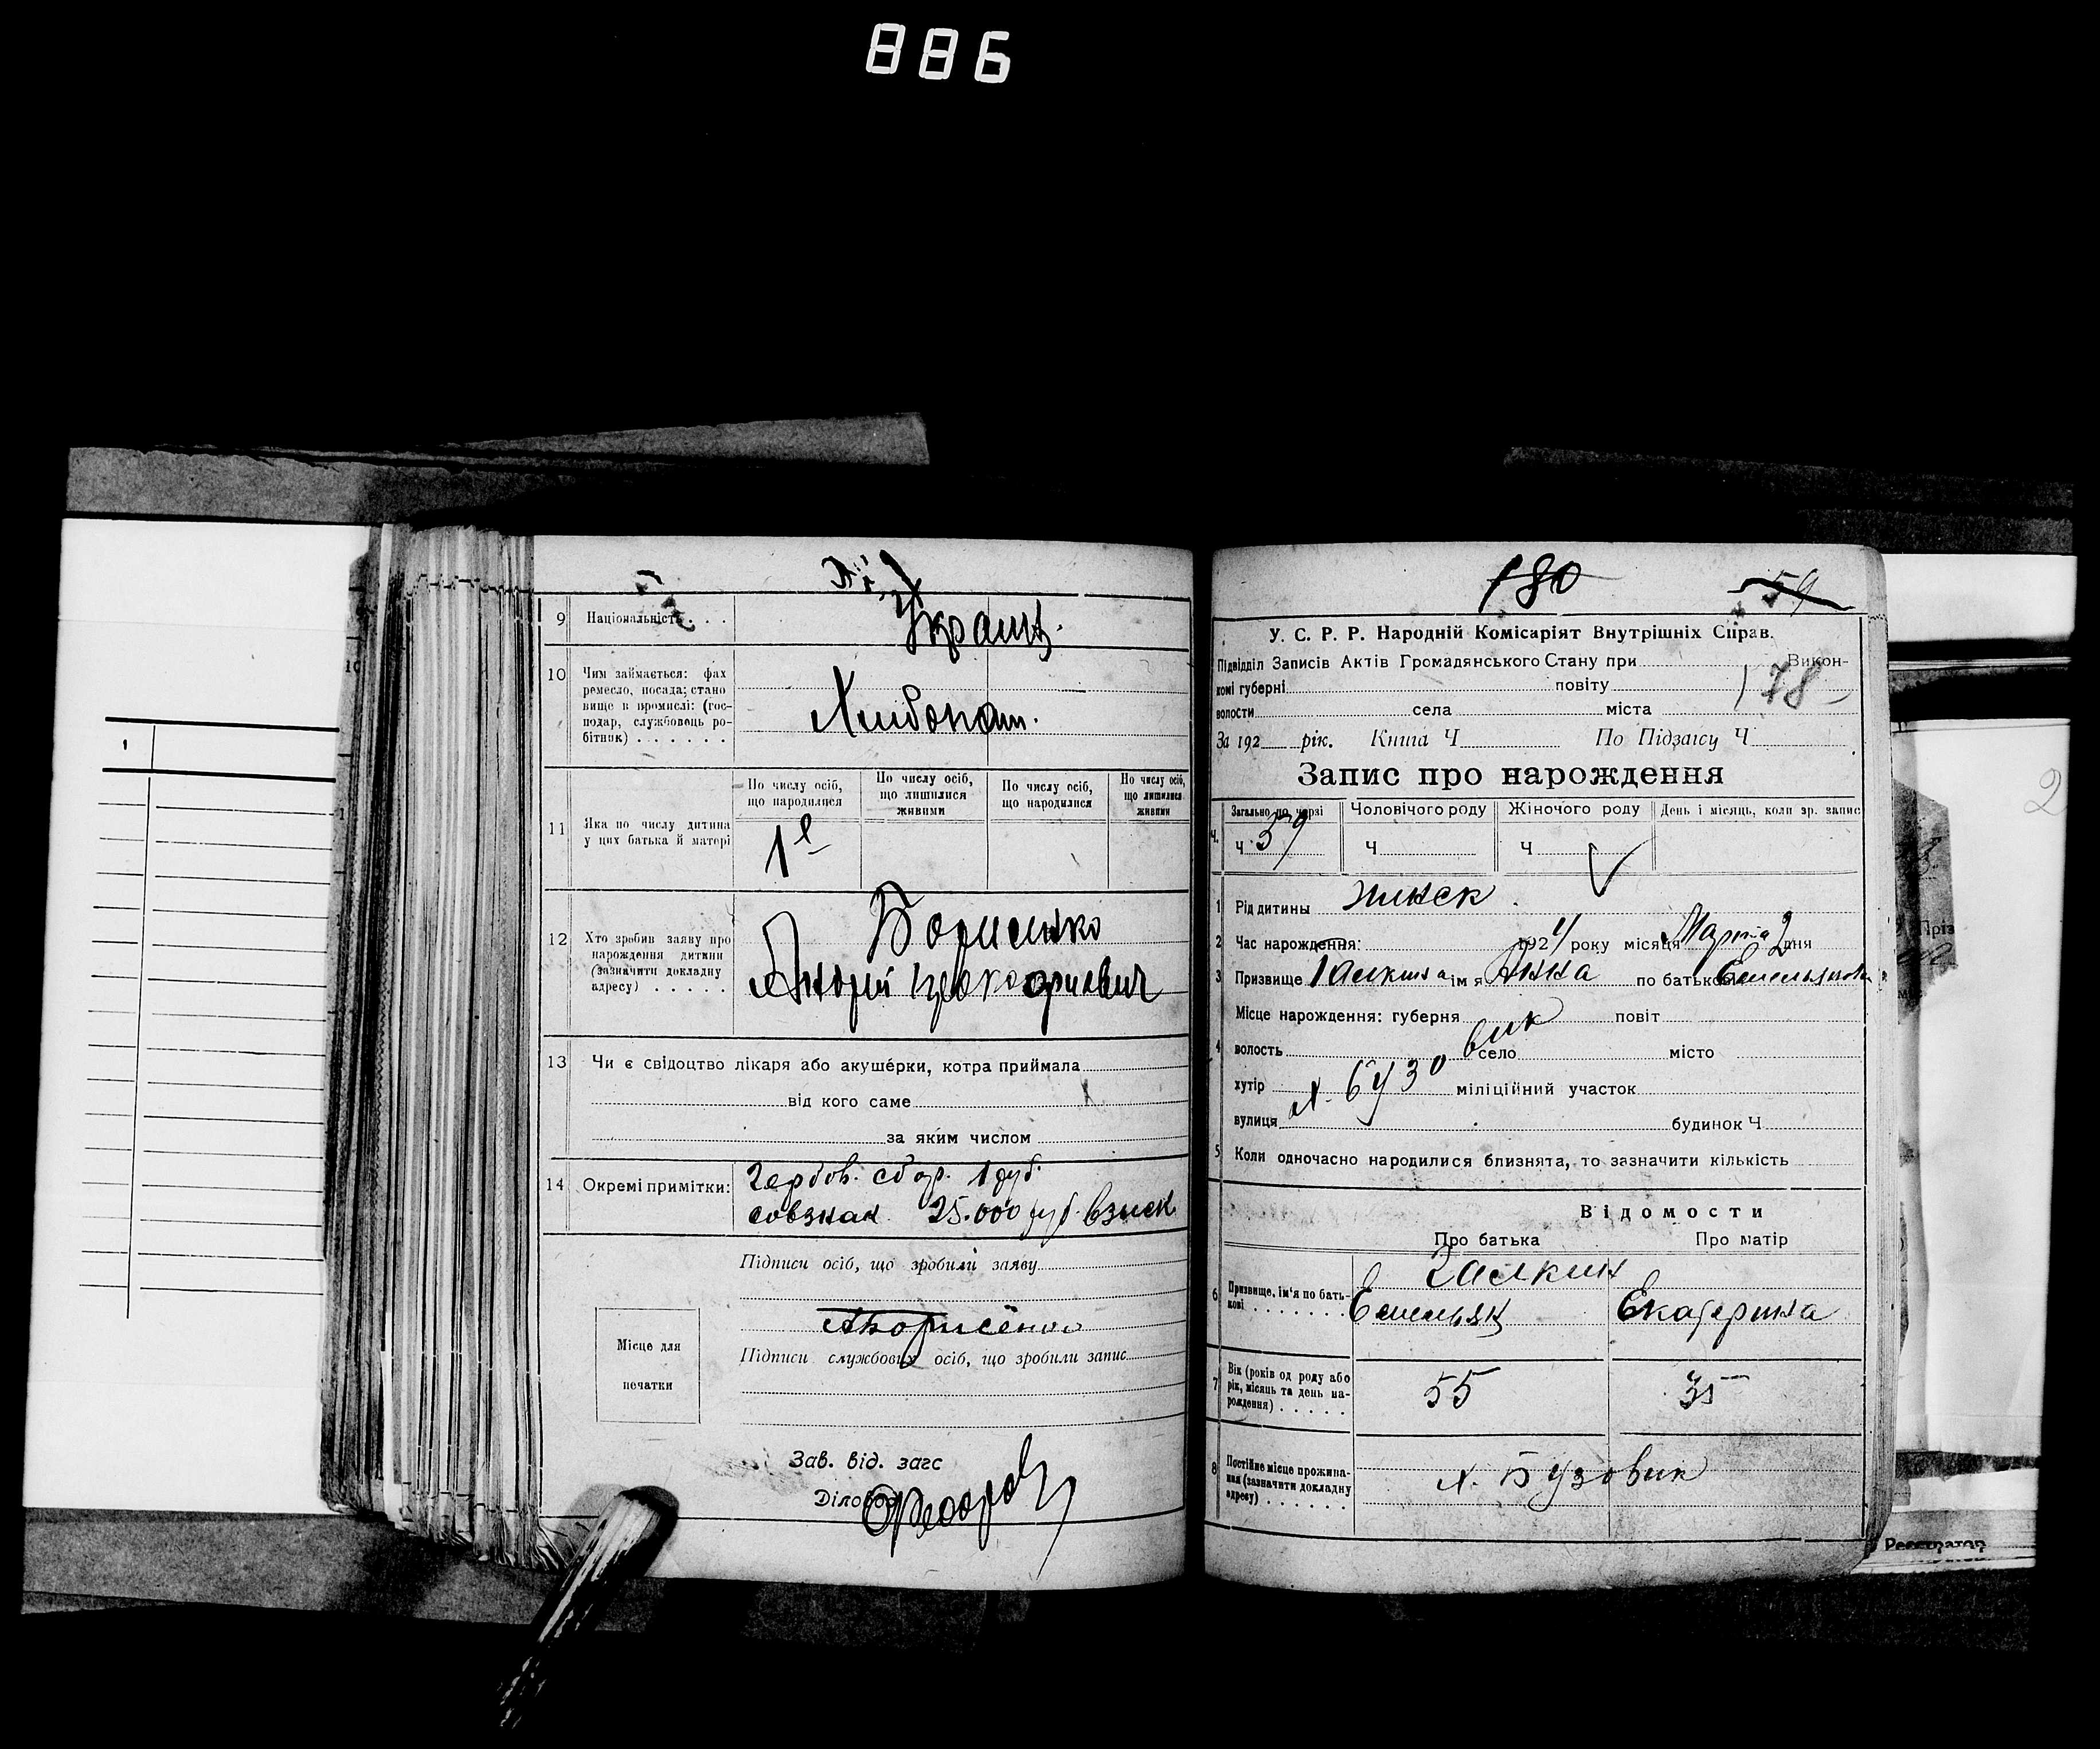 886
9 Національність . . . Украинц.
10 Чим займається: фах
ремесло, посада; стано
вище в промислі: (гос-
подар, службовець ро-
бітник) . . . . . .
Хлибопаш.
По числу осіб, що народилися
По числу осіб, що лишилися живими
По числу осіб, що народилися
По числу осіб, що лишилися живими
11 Яка по числу дитина
у цих батька й матері
1
12 Хто зробив заяву про
нарождення дитини
(зазначити докладну
адресу) . . . . .
Борисенко
Андрей
13 Чи є свідоцтво лікаря або акушéрки, котра приймала
від кого саме
за яким числом
14 Окремі примітки: Гербов. сбор. 1 руб.
совзнак 25.000 руб. взыск
Підписи осіб, що зробили заяву
АБорисенко
Підписи службових осіб, що зробили запис
Місце для
печатки
Зав. від. загс
Діловод
Федоров
180 59
У. С. Р. Р. Народній Комісаріят Внутрішніх Справ.
Підвідділ Записів Актів Громадянського Стану при Викон-
комі губерні повіту
178
волости села міста
За 192 рік. Книга Ч По Підзагсу Ч
Запис про нарождення
Загально по черзі Чоловічого роду Жіночого роду День і місяць, коли зр. запис
Ч. Ч 59 Ч Ч
1 Рід дитины женск
2 Час нарождення: 1924 року місяця Марта 2 дня
3 Призвище ім я Анна по батькові
4 Місце нарождення: губерня повіт
волость вик село місто
хутір х. Бузо міліційний участок
вулиця будинок Ч
5 Коли одночасно народилися близнята, то зазначити кількість
Відомости
Про батька Про матір
6 Призвище, ім'я по бать-
кові . . . . . . .
Емельян Екатерина
7 Вік (років од роду або
рік, місяць та день на-
рождення) . . . . .
55 35
8 Постійне місце прожива-
ння (зазначити докладну
адресу) . . . . . .
х. Бузовик
Реєстратор
2
1